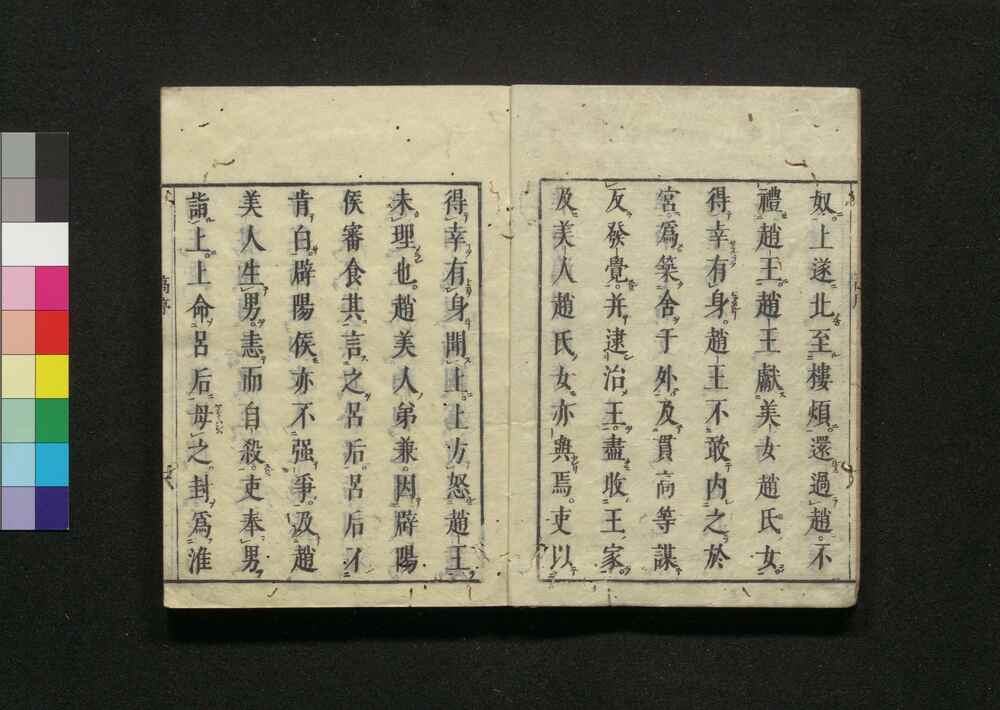 奴上遂北至樓煩還過趙不
禮趙王趙王獻美女趙氏女
得幸有身趙王不敢內之於
宮爲築舍于外及貫高等謀
反發覺并逮治王盡收王家
及美人趙氏女亦與焉吏以
得幸有身聞上上方怒趙王
未理也趙美人弟兼因辟陽
侯審食其言之呂后呂后不
肯白辟陽侯亦不强爭及趙
美人生男恚而自殺吏奉男
詣上上命呂后母之封爲淮